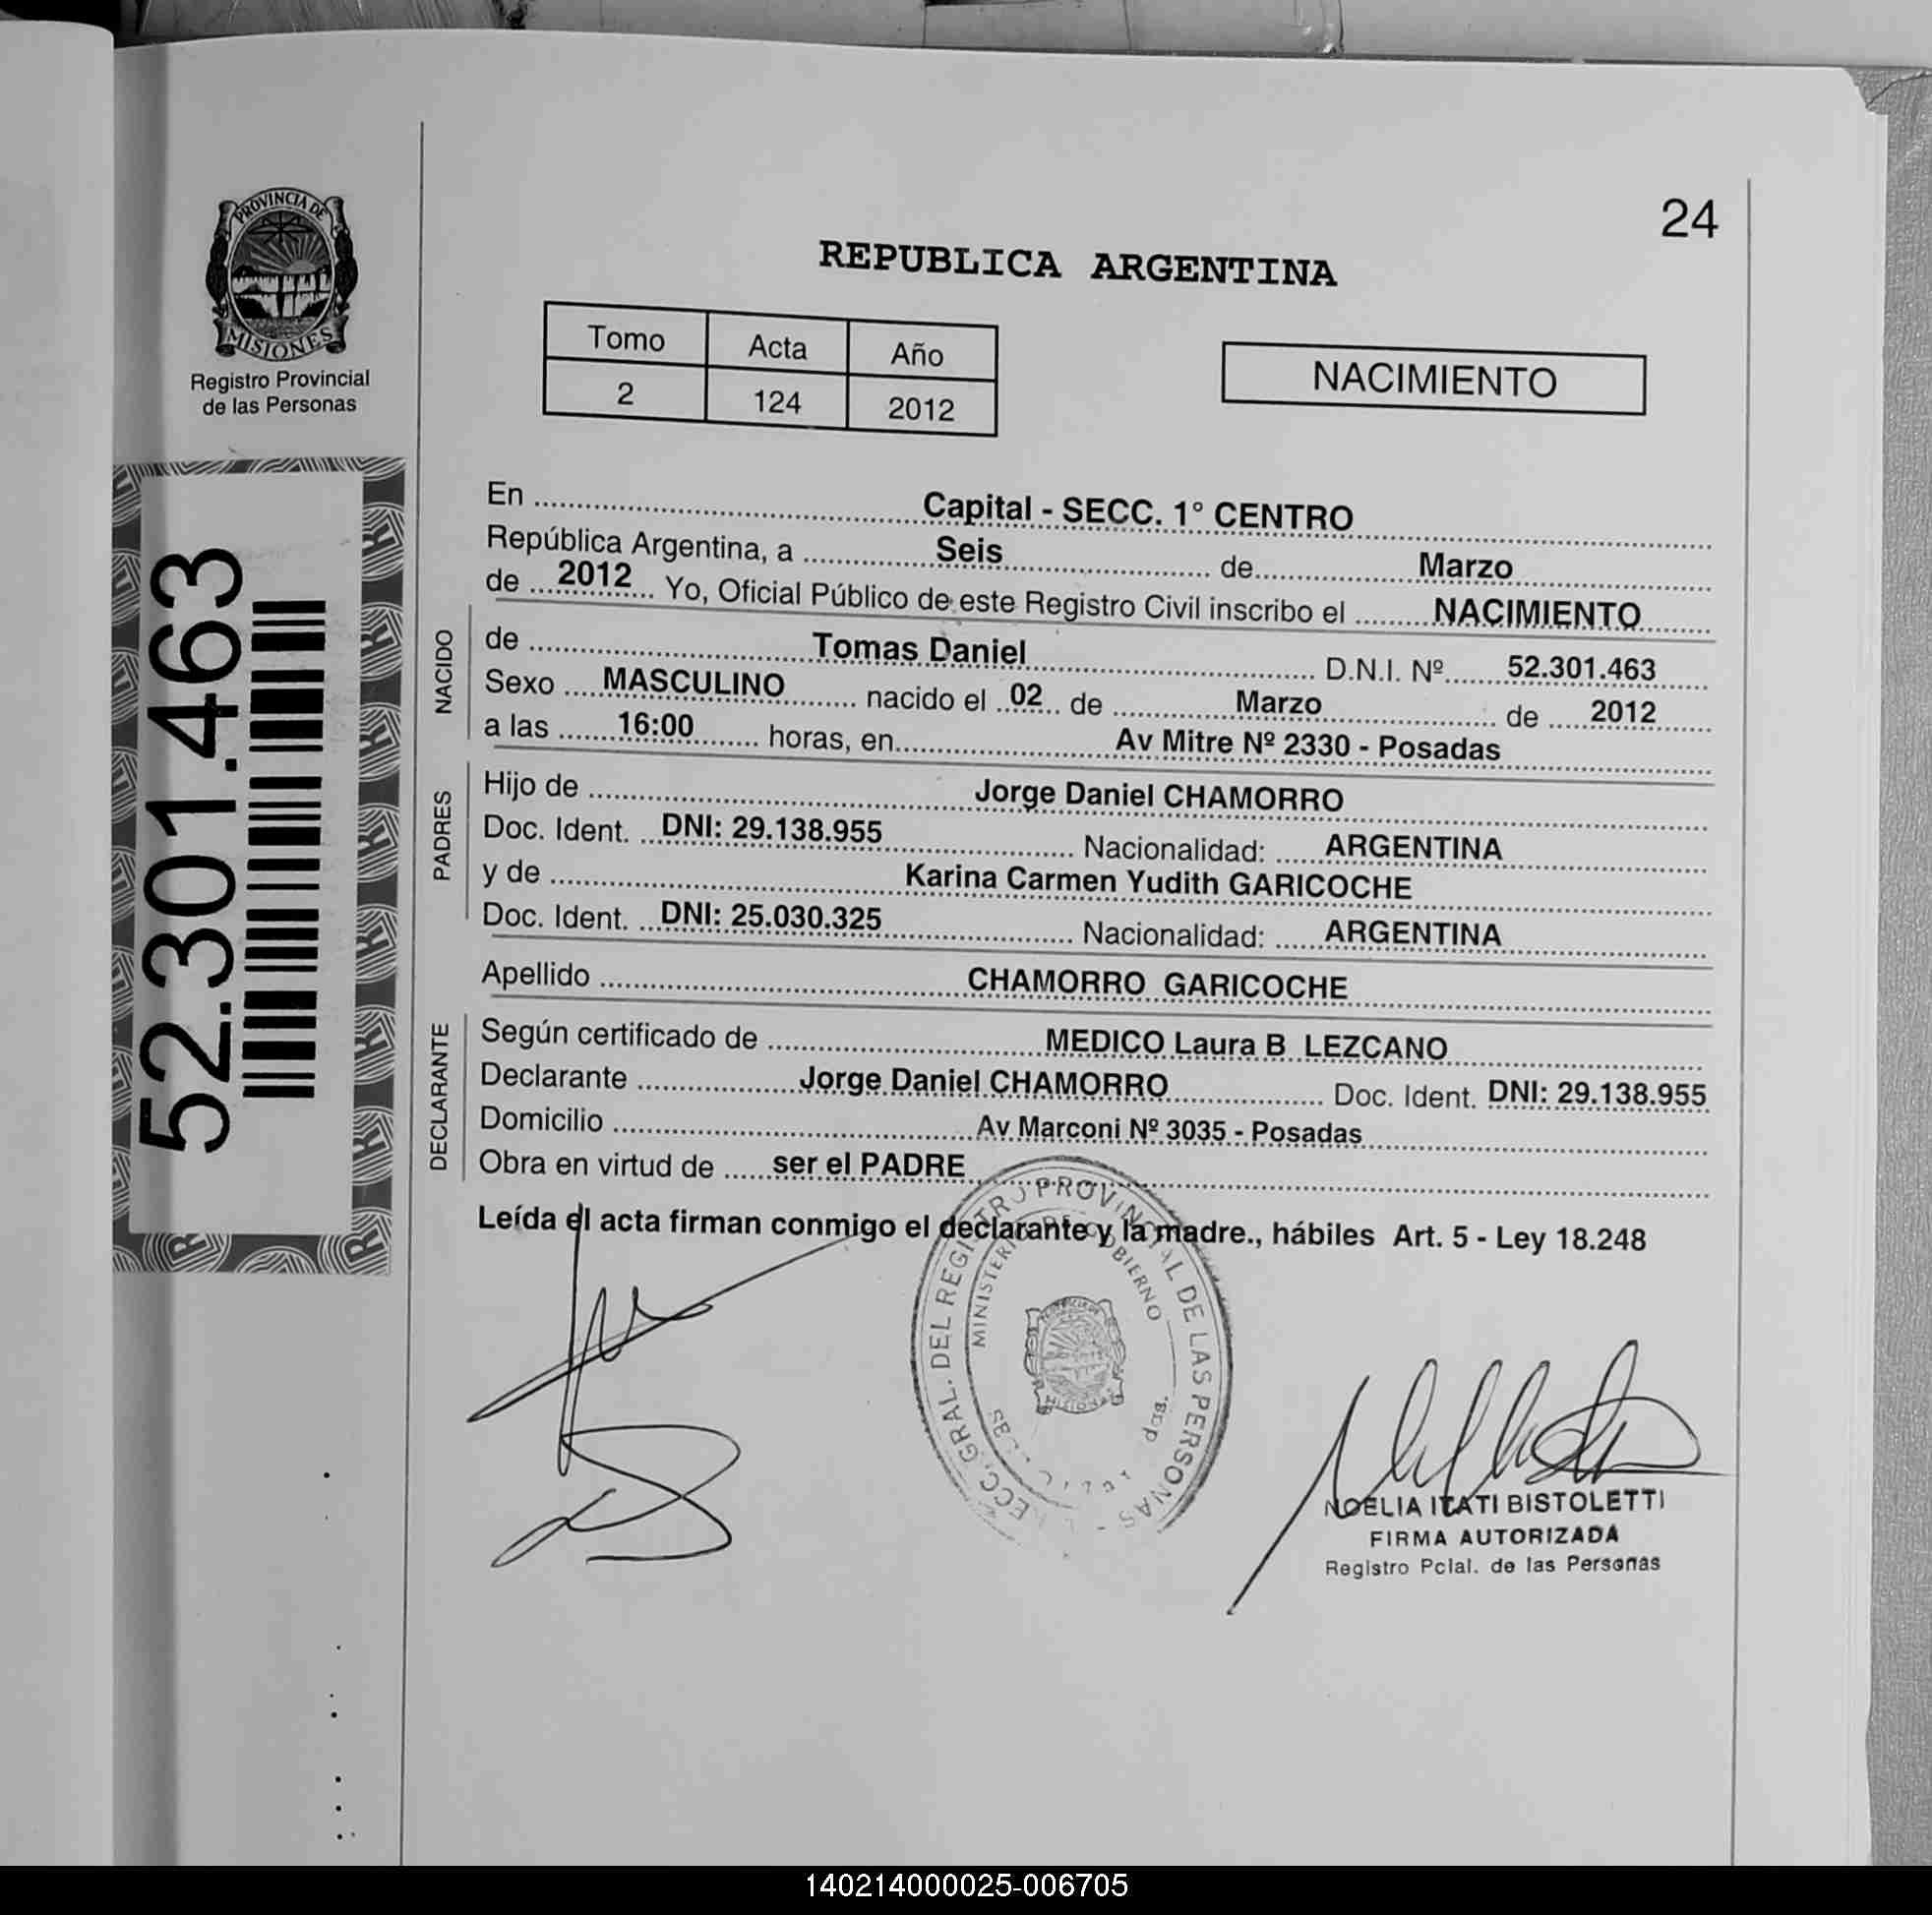 24
PROVINCIA DE
MISIONES
Registro Provincial
de las Personas
REPUBLICA ARGENTINA
Tomo Acta Año
2 124 2012
NACIMIENTO
52.301.463
En Capital - SECC. 1° CENTRO
República Argentina, a Seis de Marzo
de 2012 Yo, Oficial Público de este Registro Civil inscribo el NACIMIENTO
NACIDO
de Tomas Daniel D.N.I. Nº 52.301.463
Sexo MASCULINO nacido el 02 de Marzo de 2012
a las 16:00 horas, en Av Mitre Nº 2330 - Posadas
PADRES
Hijo de Jorge Daniel CHAMORRO
Doc. Ident. DNI: 29.138.955 Nacionalidad: ARGENTINA
y de Karina Carmen Yudith GARICOCHE
Doc. Ident. DNI: 25.030.325 Nacionalidad: ARGENTINA
Apellido CHAMORRO GARICOCHE
DECLARANTE
Según certificado de MEDICO Laura B LEZCANO
Declarante Jorge Daniel CHAMORRO Doc. Ident. DNI: 29.138.955
Domicilio Av Marconi Nº 3035 - Posadas
Obra en virtud de ser el PADRE
Leída el acta firman conmigo el declarante y la madre., hábiles Art. 5 - Ley 18.248
GRAL. DEL REGISTRO PROVINCIAL DE LAS PERSONAS
MINISTERIO DE GOBIERNO
NOELIA ITATI BISTOLETTI
FIRMA AUTORIZADA
Registro Pcial. de las Personas
140214000025-006705